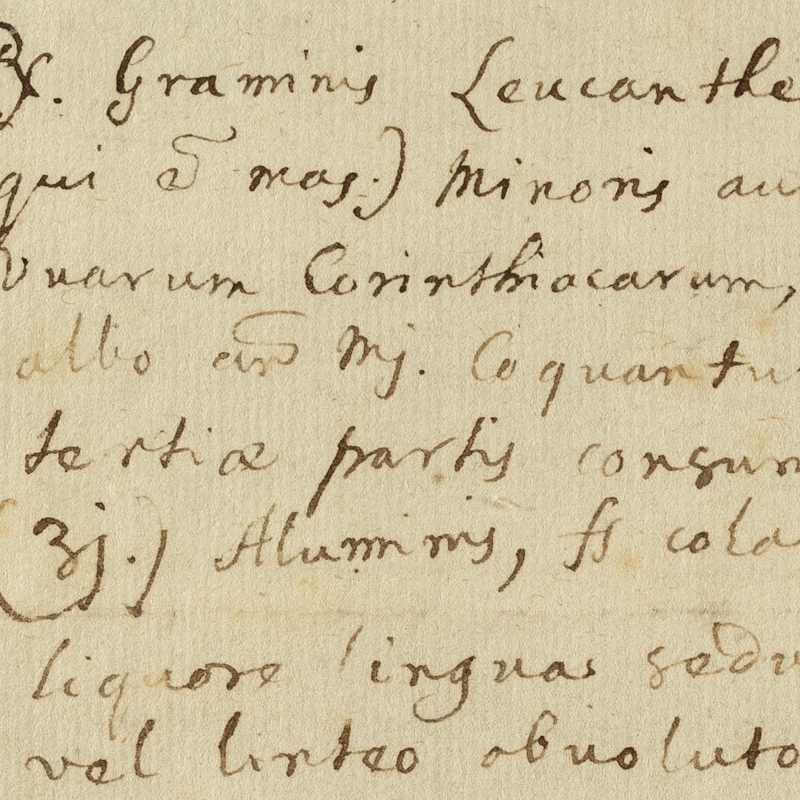 ℞. Graminis Leucanthe
qui ē mas.) Minoris au
vuarum Corinthiacarum,
albo an̄ Mj. Coquantu
tertiæ partis consum
(ʒj.) Aluminis, fs cola
liquore linguas sedu
vel linteo obuoluto